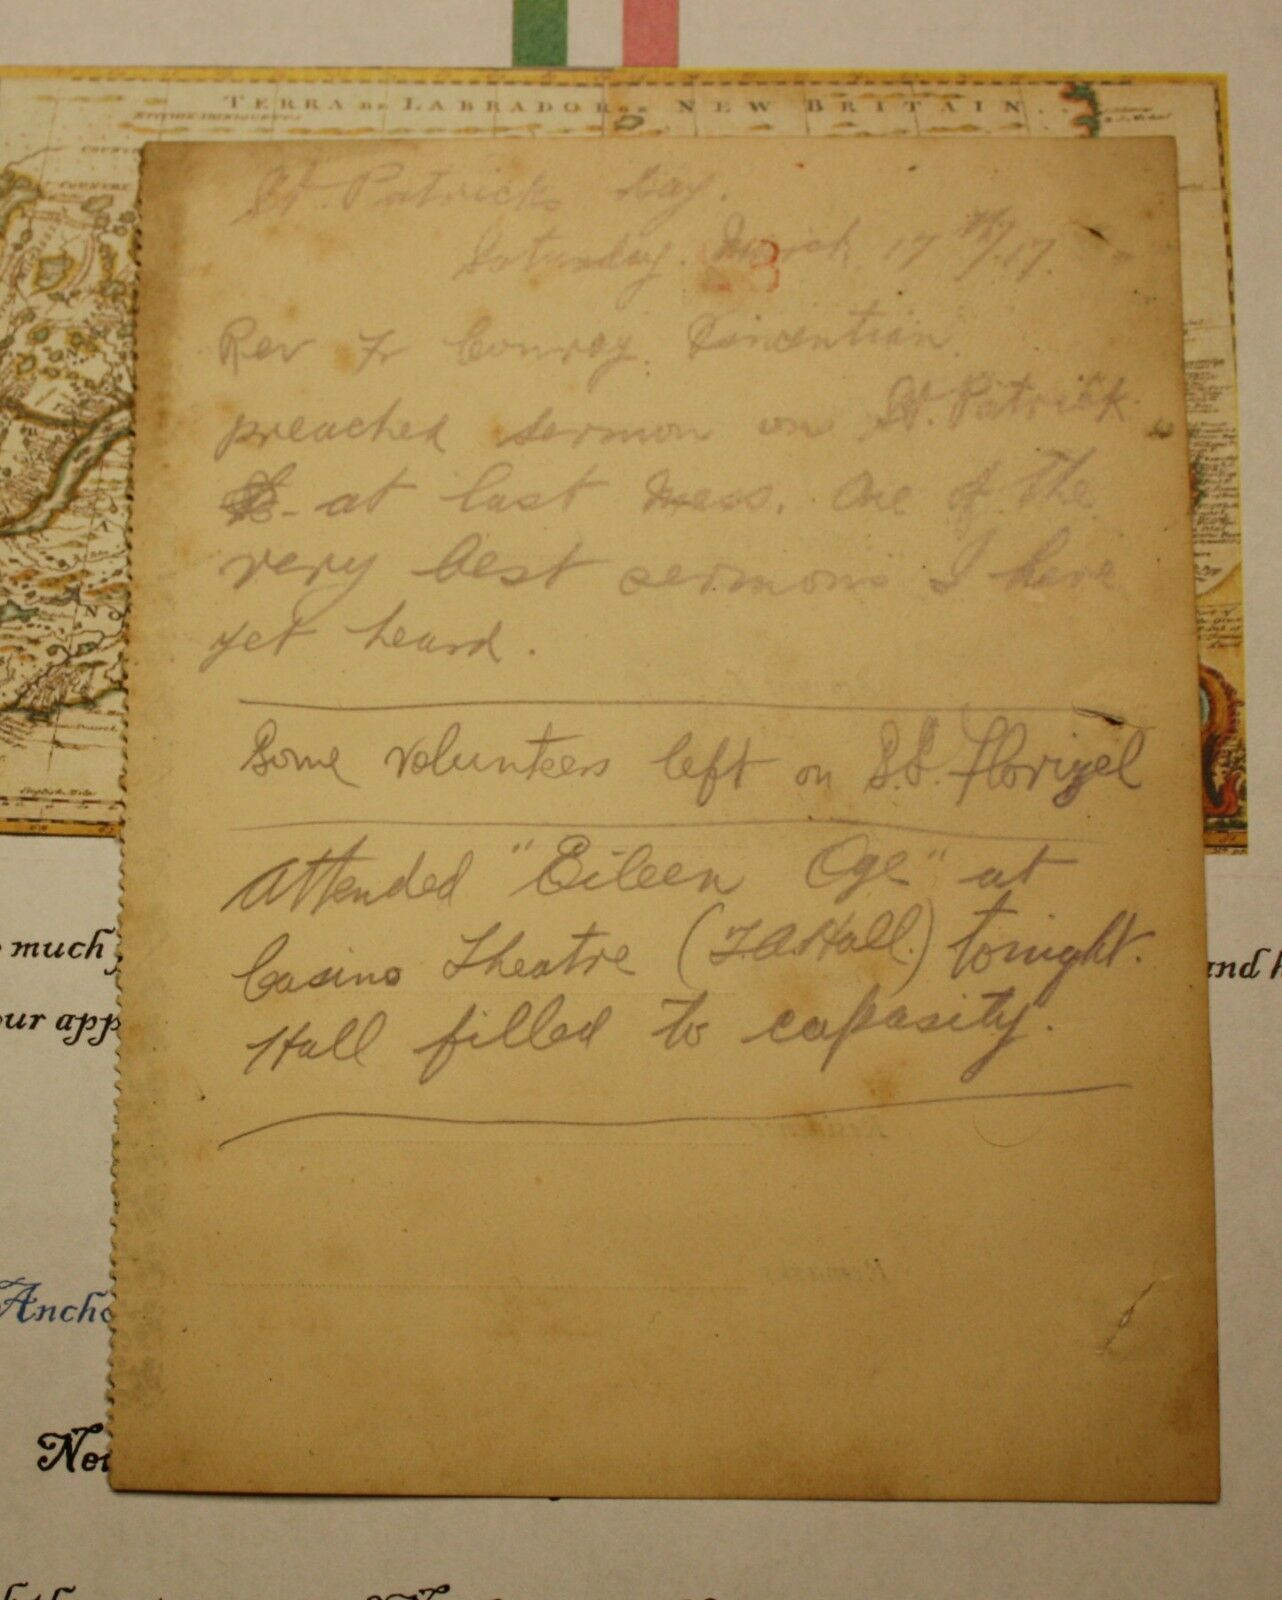 TERRA DE LABRADOR OR NEW BRITAIN.
St. Patricks Day.
Saturday. March 17th/17.
3
Rev Fr Conroy. Vincentian.
preached sermon on St. Patrick
at last mass. One of the
very best sermons I have
yet heard.
Some volunteers left on S.S. Florizel
Attended "Eileen Oge" at
Casino Theatre (T.A. Hall.) tonight.
Hall filled to capasity.
Residence
Remarks
much
and
our app
Ancho